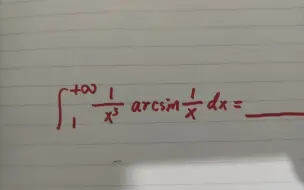 ∫₁^{+∞} \frac{1}{x³} arcsin \frac{1}{x} dx = ____